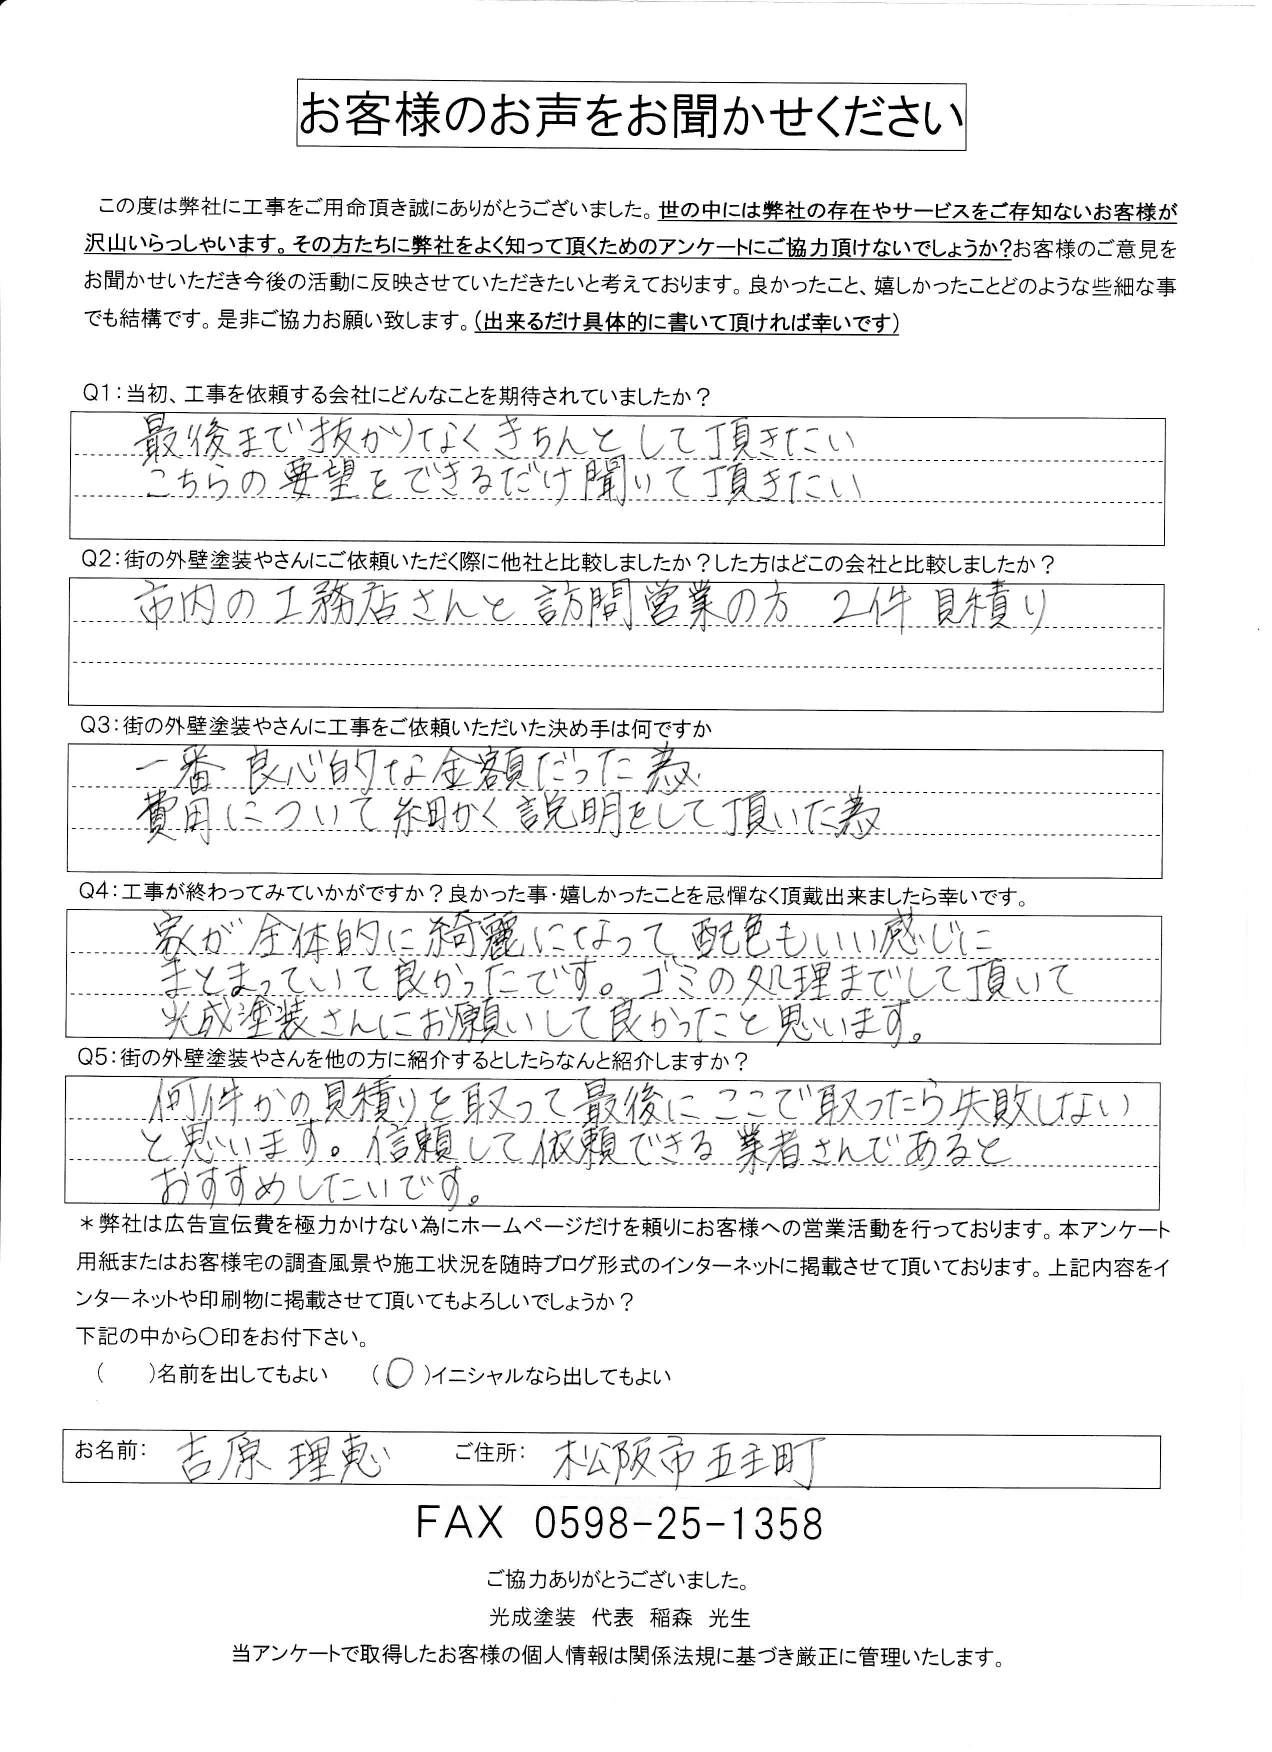 お客様のお声をお聞かせください
この度は弊社に工事をご用命頂き誠にありがとうございました。世の中には弊社の存在やサービスをご存知ないお客様が
沢山いらっしゃいます。その方たちに弊社をよく知って頂くためのアンケートにご協力頂けないでしょうか?お客様のご意見を
お聞かせいただき今後の活動に反映させていただきたいと考えております。良かったこと、嬉しかったことどのような些細な事
でも結構です。是非ご協力お願い致します。(出来るだけ具体的に書いて頂ければ幸いです)
Q1:当初、工事を依頼する会社にどんなことを期待されていましたか?
最後まで抜かりなくきちんとして頂きたい
こちらの要望をできるだけ聞いて頂きたい
Q2:街の外壁塗装やさんにご依頼いただく際に他社と比較しましたか?した方はどこの会社と比較しましたか?
市内の工務店さんと訪問営業の方 2件見積り
Q3:街の外壁塗装やさんに工事をご依頼いただいた決め手は何ですか
一番良心的な金額だった為
費用について細かく説明をして頂いた為
Q4:工事が終わってみていかがですか?良かった事・嬉しかったことを忌憚なく頂戴出来ましたら幸いです。
家が全体的に綺麗になって配色もいい感じに
まとまっていて良かったです。ゴミの処理までして頂いて
光成塗装さんにお願いして良かったと思います。
Q5:街の外壁塗装やさんを他の方に紹介するとしたらなんと紹介しますか?
何件かの見積りを取って最後にここで取ったら失敗しない
と思います。信頼して依頼できる業者さんであると
おすすめしたいです。
*弊社は広告宣伝費を極力かけない為にホームページだけを頼りにお客様への営業活動を行っております。本アンケート
用紙またはお客様宅の調査風景や施工状況を随時ブログ形式のインターネットに掲載させて頂いております。上記内容をイ
ンターネットや印刷物に掲載させて頂いてもよろしいでしょうか?
下記の中から〇印をお付下さい。
( )名前を出してもよい (〇)イニシャルなら出してもよい
お名前: 吉原 理恵 ご住所: 松阪市五主町
FAX 0598-25-1358
ご協力ありがとうございました。
光成塗装 代表 稲森 光生
当アンケートで取得したお客様の個人情報は関係法規に基づき厳正に管理いたします。